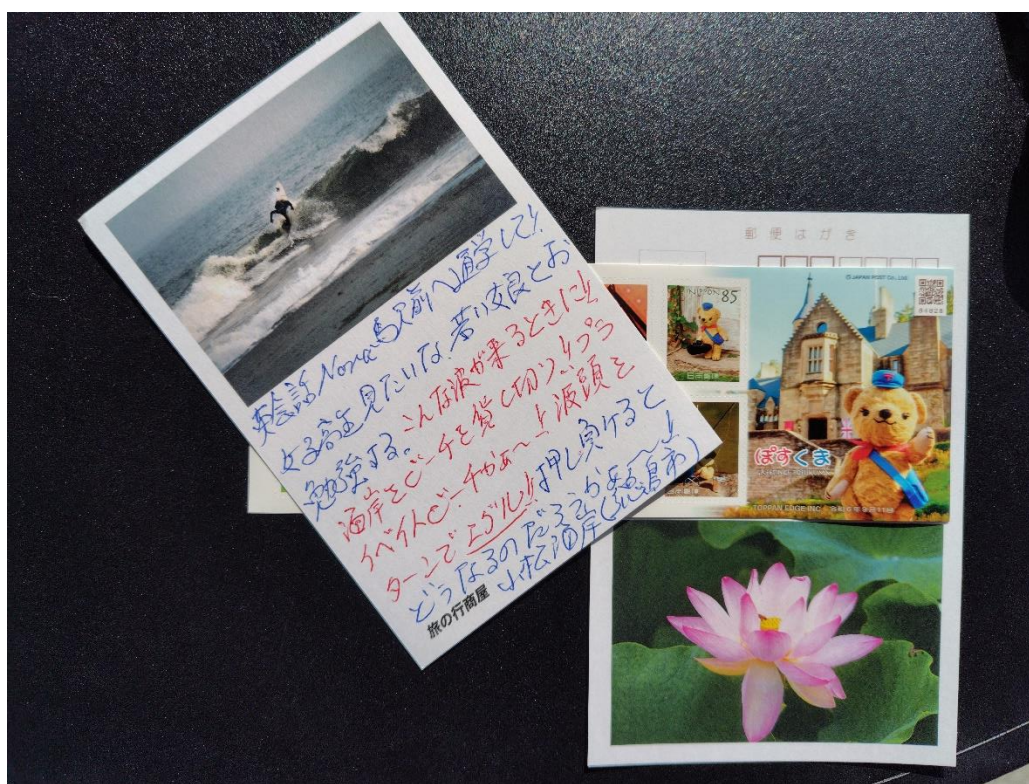 英会話Nova駅前へ通学して!!
女子高生見たいな、若い娘とお
勉強する。こんな波が来るときに!!
海岸とビーチを貸し切り!!プラ
イベイトビーチかぁ〜!波頭を
ターンでエグル!!押し負けると
どうなるのだろうかぁ〜!
小松海岸
旅の行商屋
郵便はがき
© JAPAN POST Co., Ltd.
NIPPON 85
日本郵便
ぽすくま
TOPPAN EDGE INC.
令和6年9月11日